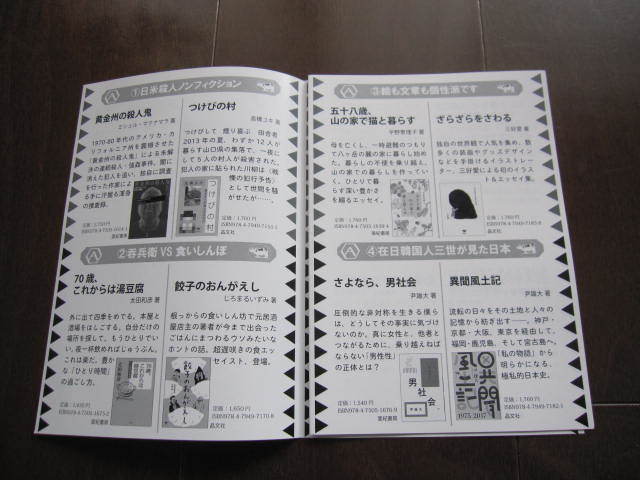 ①日米殺人ノンフィクション
黄金州の殺人鬼
ミシェル・マクナマラ 著
1970-80年代のアメリカ・カ
リフォルニア州を震撼させた
「黄金州の殺人鬼」による未解
決の連続殺人・強姦事件。闇に
消えた犯人を追い、独自に調査
を行った作家によ
る手に汗握る渾身
の捜査録。
つけびの村
高橋ユキ 著
つけびして 煙り喜ぶ 田舎者
2013年の夏、わずか12人が
暮らす山口県の集落で、一夜に
して5人の村人が殺害された。
犯人の家に貼られた川柳は〈戦
慄の犯行予告〉
として世間を騒
がせたが……。
つけびの村
定価：1,760円
晶文社
亜紀書房
②吞兵衛VS食いしんぼ
70歳、
これからは湯豆腐
太田和彦 著
外に出て四季をめでる。本屋と
酒場をはしごする。自分だけの
場所を探して、もうひとりでい
い。夜一杯飲めればじゅうぶん。
これは楽だ。豊か
な「ひとり時間」
の過ごし方。
亜紀書房
餃子のおんがえし
じろまるいずみ 著
根っからの食いしん坊で元居酒
屋店主の著者が今まで出会った
ごはんにまつわるウソみたいな
ホントの話。超遅咲きの食エッ
セイスト、登場。
餃子のおんがえし
定価：1,650円
ISBN978-4-7949-7170-8
晶文社
③絵も文章も個性派です
五十八歳、
山の家で猫と暮らす
平野恵理子 著
母を亡くし、一時避難のつもり
で八ヶ岳の麓の家に暮らし始め
た。暮らしの不便を乗り越え、
山の家での暮らしを作っていく。
ひとりで暮
らす深い豊かさ
を綴るエッセイ。
亜紀書房
さらざらをさわる
三好愛 著
独自の世界観で人気を集め、数
多くの装画やグッズデザイン
などを手掛けるイラストレー
ター、三好愛による初のイラスト
&エッセイ集。
定価：1,760円
晶文社
④在日韓国人三世が見た日本
さよなら、男社会
尹雄大 著
圧倒的な非対称を生きる僕ら
は、どうしてその事実に気づけ
ないのか。真に女性と、他者と
つながるために、乗り越えねば
ならない「男性性」
の正体とは？
男
社
会
亜紀書房
異聞風土記
尹雄大 著
流転の日々をその土地と人々の
記憶から紡ぎ出す──。神戸・
京都・大阪、東京を経由して、
福岡・鹿児島、そして宮古島へ。
「私の物語」から
明らかになる、
極私的日本史。
異聞風土記
1975-2017
定価：1,760円
ISBN978-4-7949-7182-1
晶文社